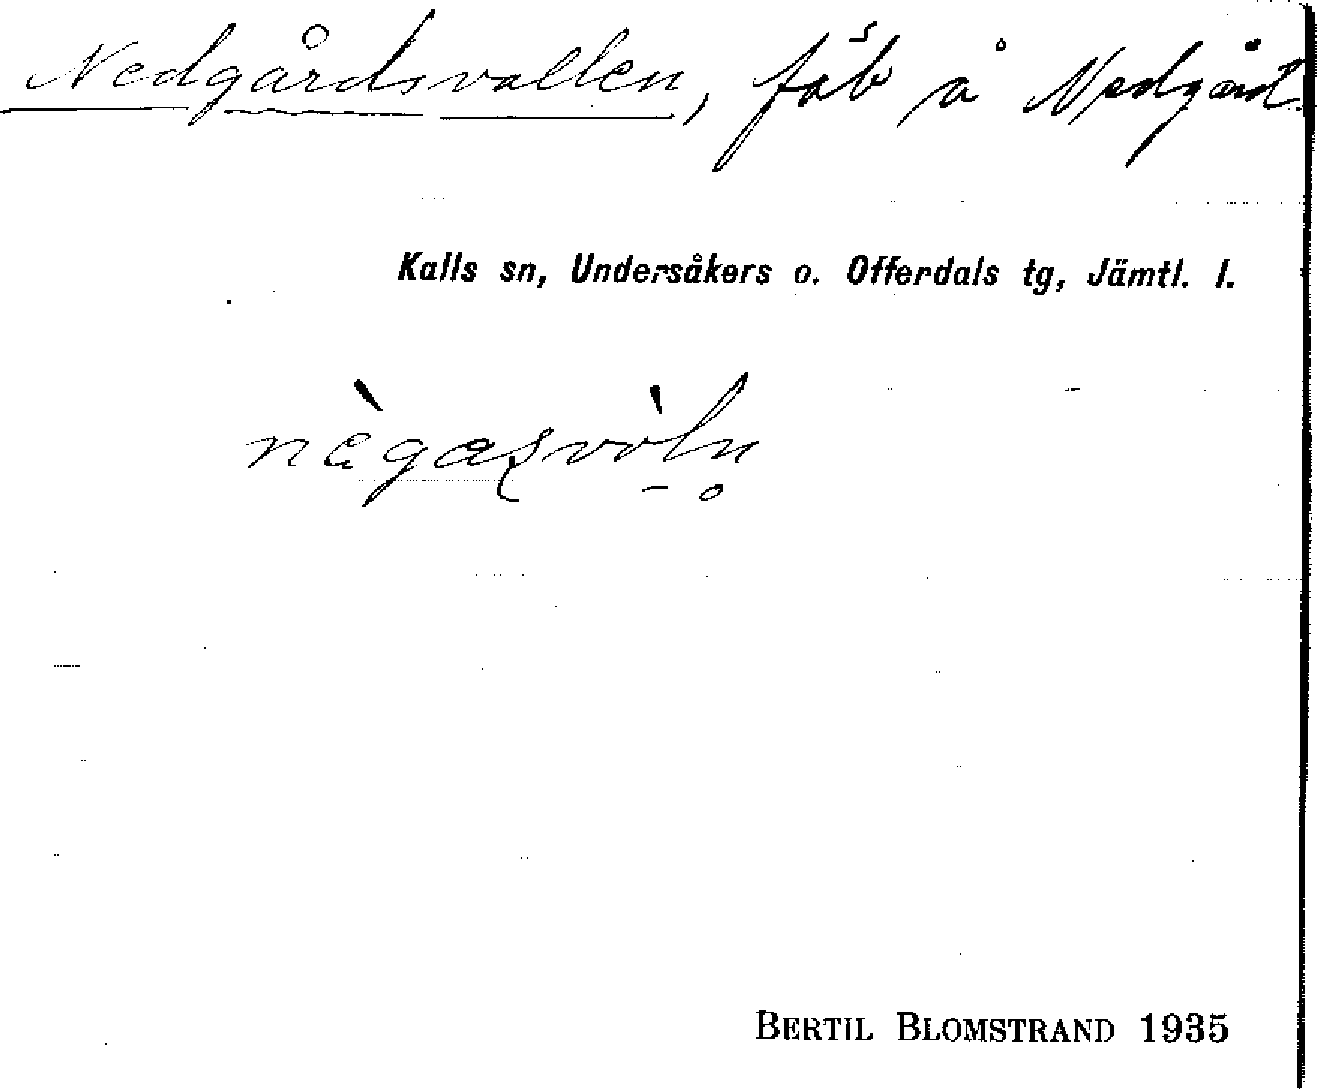 Nedgårdsvallen, fäb å Nedgård
Kalls sn, Undersåkers o. Offerdals tg, Jämtl. l.
nègasvòln̥
BERTIL BLOMSTRAND 1935